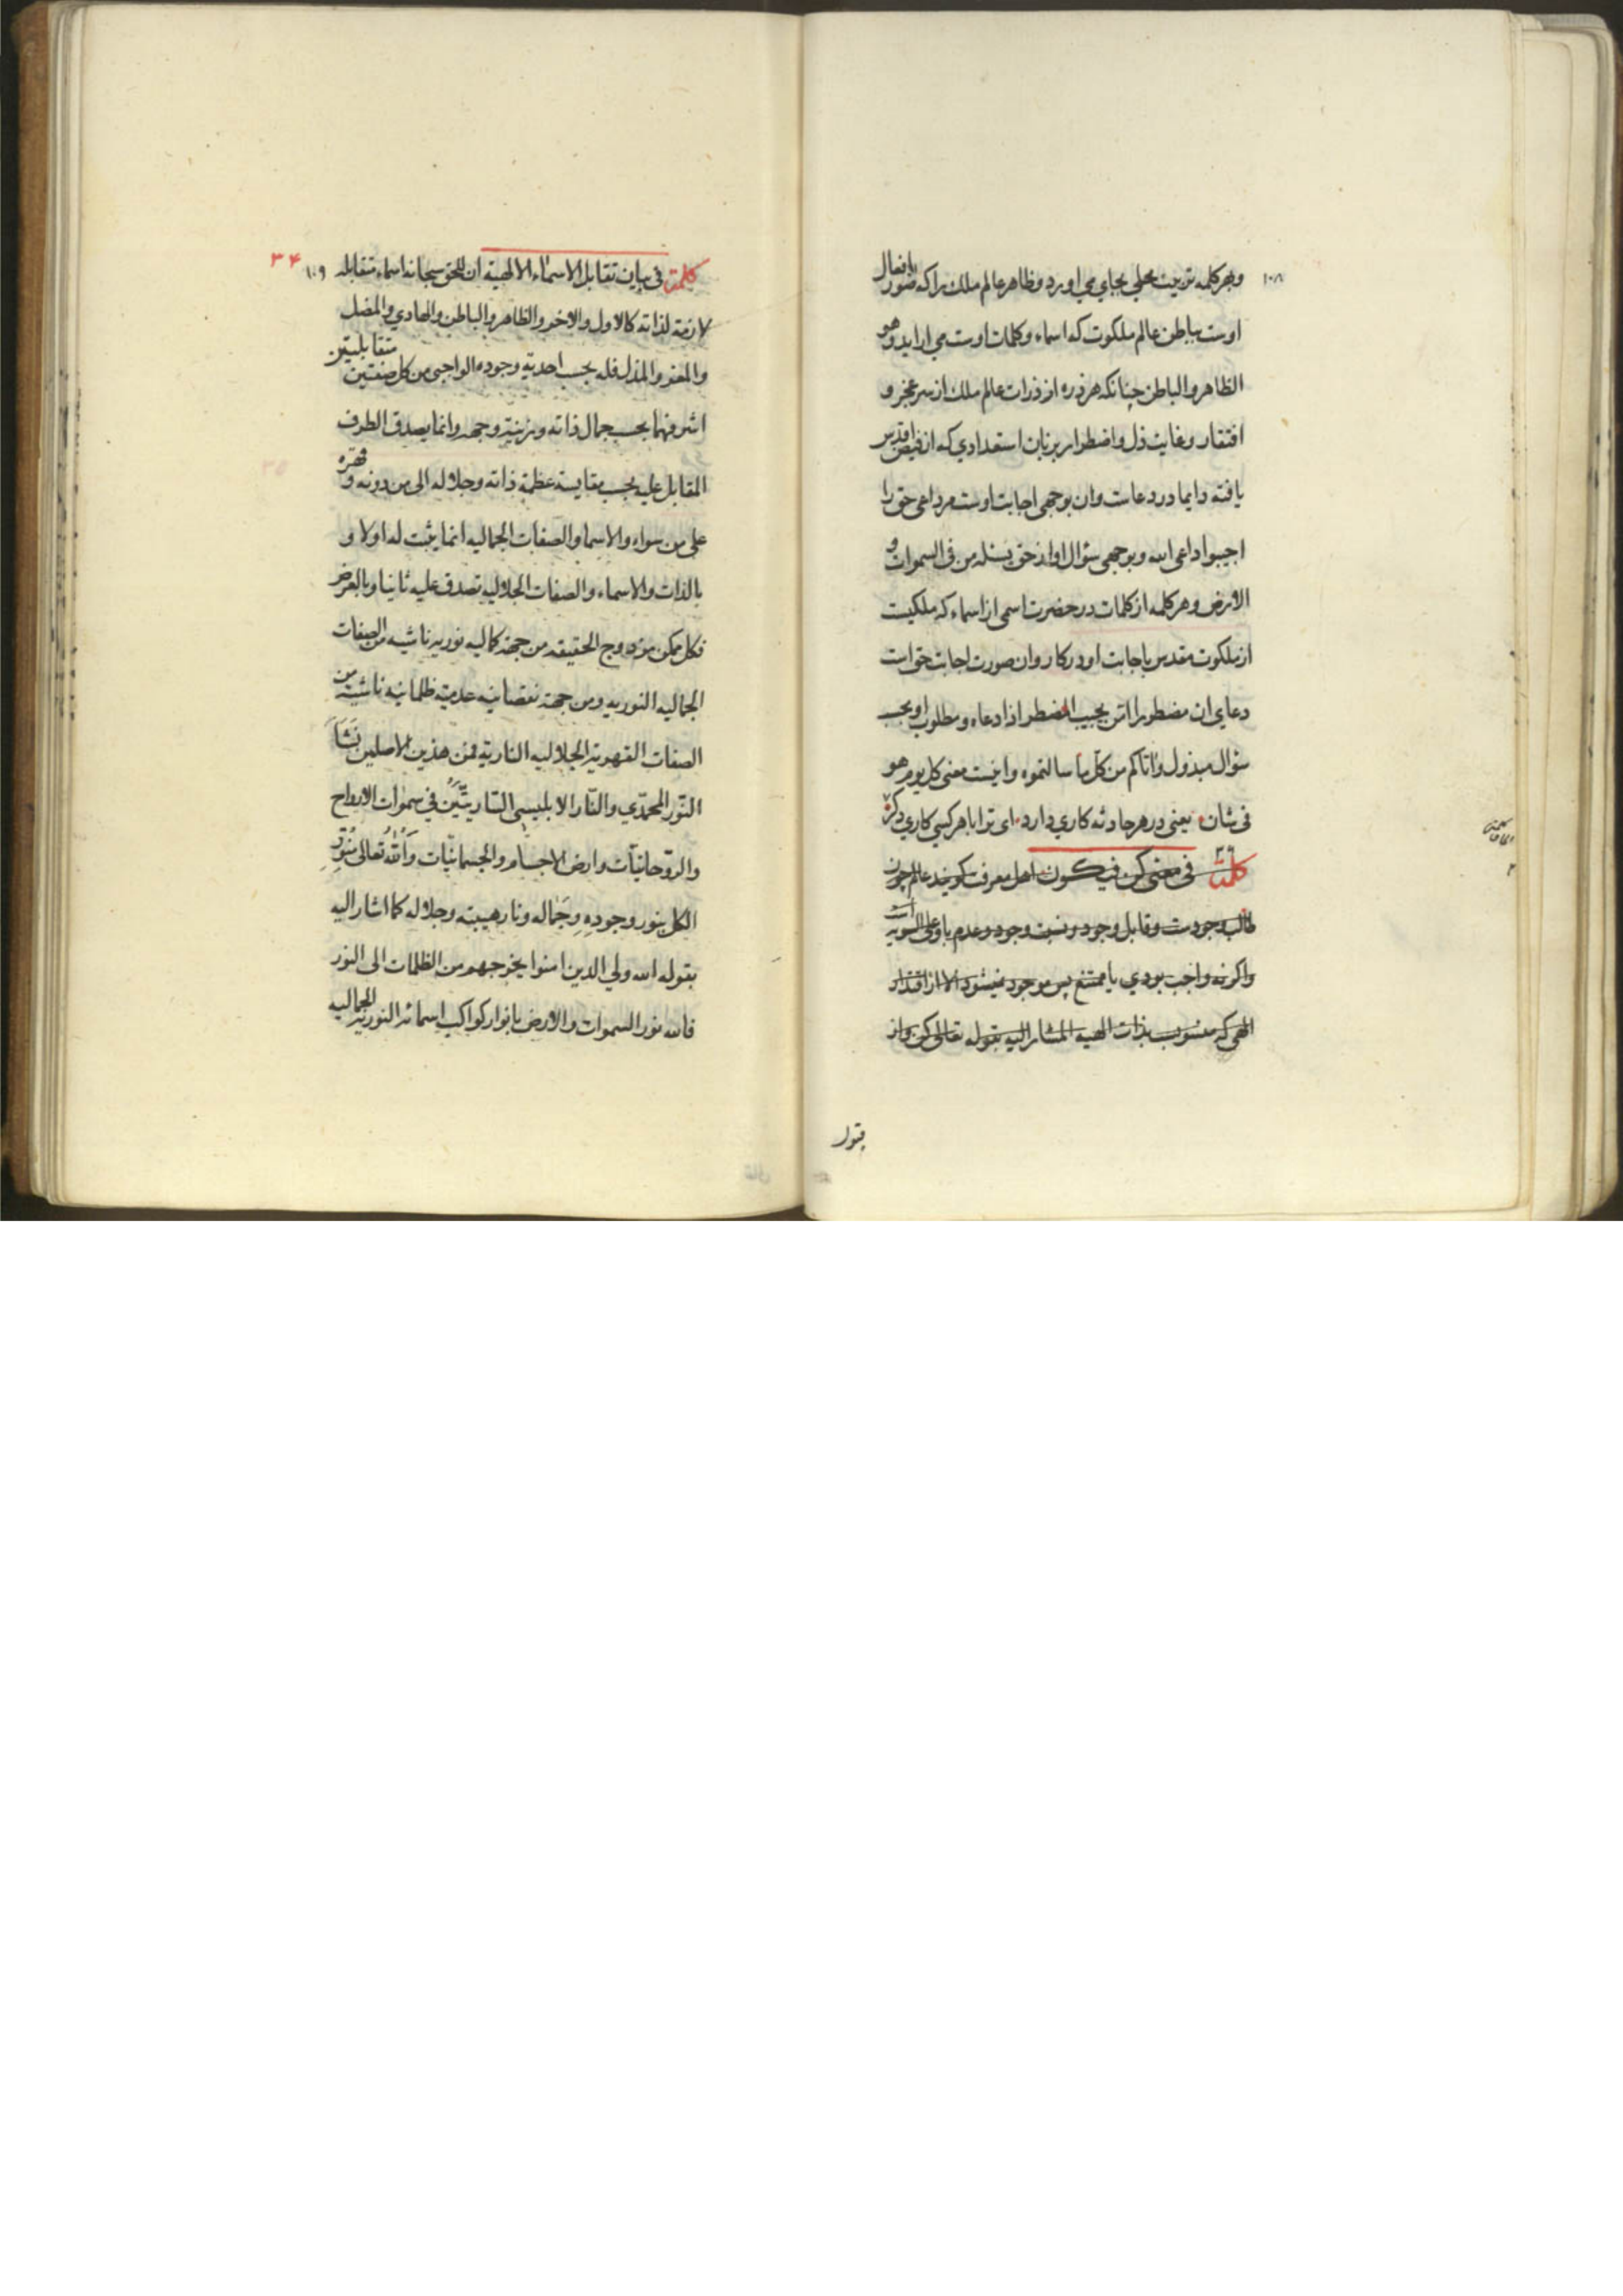 ١٠٨
وبهر کلمه تربیت محلی بجای می اورد ومظاهر عالم ملك را که صور یا افعال
اوست بباطن عالم ملکوت که اسماء وکلمات اوست می اراید وهو
الظاهر والباطن چنانکه هر ذره از ذرات عالم ملك از سر عجز و
افتقار وغایت ذل واضطرار بزبان استعدادی که از فیض اقدس
یافته دایما در دعاست وان بوجهی اجابت اوست مر داعی حق را
اجیبوا داعی الله وبوجهی سؤال او از حق یسئله من فی السموات و
الارض وهر کلمه از کلمات در حضرت اسمی از اسماء که ملکیست
از ملکوت مقدس باجابت او در کار وان صورت اجابت حق است
دعای ان مضطر را امّن یجیب المضطر اذا دعاه ومطلوب او بحسب
سؤال مبذول واتاکم من کل ما سالتموه واینست معنی کل یوم هو
فی شان یعنی در هر حادثه کاری دارد ای ترا با هر کسی کاری دگر
کلمة فی معنی کن فیکون اهل معرفت گویند عالم چون
طالب وجودست وقابل وجود ونسبت وجود وعدم باو علی السویه است
واگر نه واجب بودی یا ممتنع پس موجود نمیشود الا از اقتدار
الهی که منسوب بذات الهیه المشار الیه بقوله تعالی کن واز
قبول
٣٤
١٠٩
کلمة فی بیان تقابل الاسماء الالهیة ان للحق سبحانه اسماء متقابله
لازمة لذاته کالاول والاخر والظاهر والباطن والهادی والمضل
والمعز والمذل فله بحسب احدیة وجوده الواجبی من کل صفتین متقابلیتین
اشرفهما بحسب جمال ذاته وزینة وجهه وانما یصدق الطرف
المقابل علیه بحسب مقایسة عظمة ذاته وجلاله الی من دونه و قهره
علی من سواه والاسما والصفات الجمالیه انما یثبت له اولا و
بالذات والاسماء والصفات الجلالیه تصدق علیه ثانیا وبالعرض
فکل ممکن مزدوج الحقیقه من جهة کمالیه نوریه ناشیه من الصفات
الجمالیه النوریه ومن جهة نقصانیه عدمیة ظلمانیه ناشیة من
الصفات القهریة الجلالیه الناریة فمن هذین الاصلین نَشَأَ
النّور المحمّدی والنّار الابلیسی السّاریتَین فی سموات الارواح
والروّحانیّات وارض الاجسام والجسمانیّات وَاللّٰهُ تعالی مُنَوِّرِ
الکل بنور وجودِهِ وجَماله ونار هیبته وجلاله کما اشار الیه
بقوله الله ولی الذین امنوا یخرجهم من الظلمات الی النور
فالله نور السموات والارض بانوار کواکب اسمائه النوریة الجمالیه